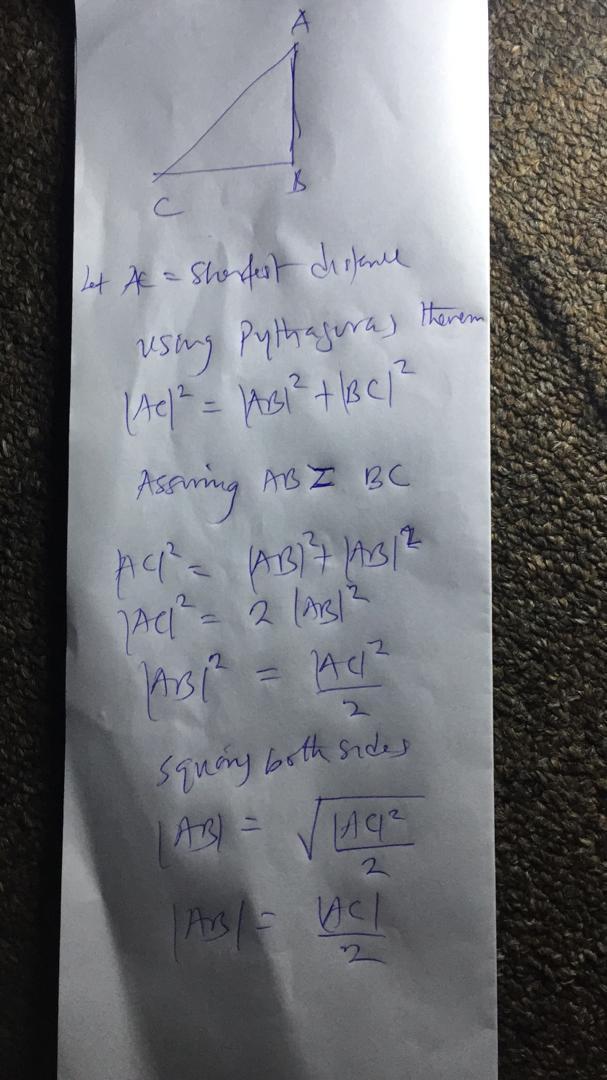 A
B
C
Let AC = Shortest distance
using Pythagoras therem
|AC|² = |AB|² + |BC|²
Assuming AB = BC
|AC|² = |AB|² + |AB|²
|AC|² = 2 |AB|²
|AB|² = |AC|²/2
squaring both sides
|AB| = √|AC|²/2
|AB| = |AC|/2